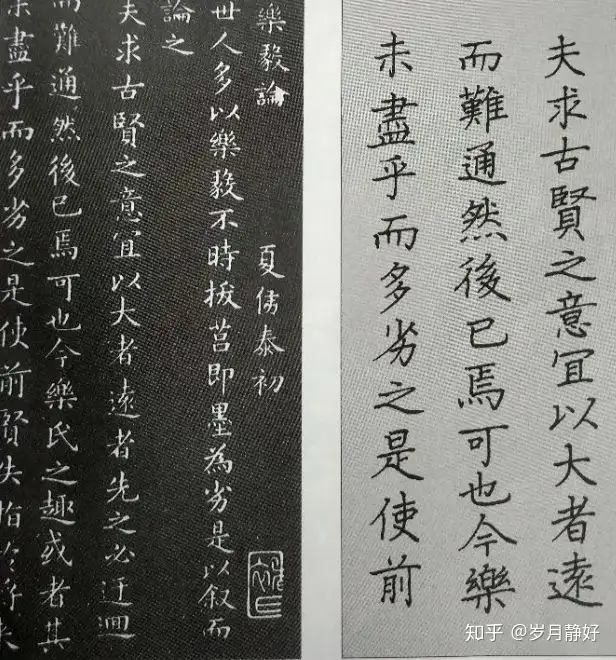 樂毅論 夏侯泰初
世人多以樂毅不時拔莒即墨為劣是以叙而
論之
夫求古賢之意宜以大者遠者先之必迂迴
而難通然後已焉可也今樂氏之趣或者其
未盡乎而多劣之是使前賢失指於將來
夫求古賢之意宜以大者遠
而難通然後已焉可也今樂
未盡乎而多劣之是使前
知乎 @岁月静好